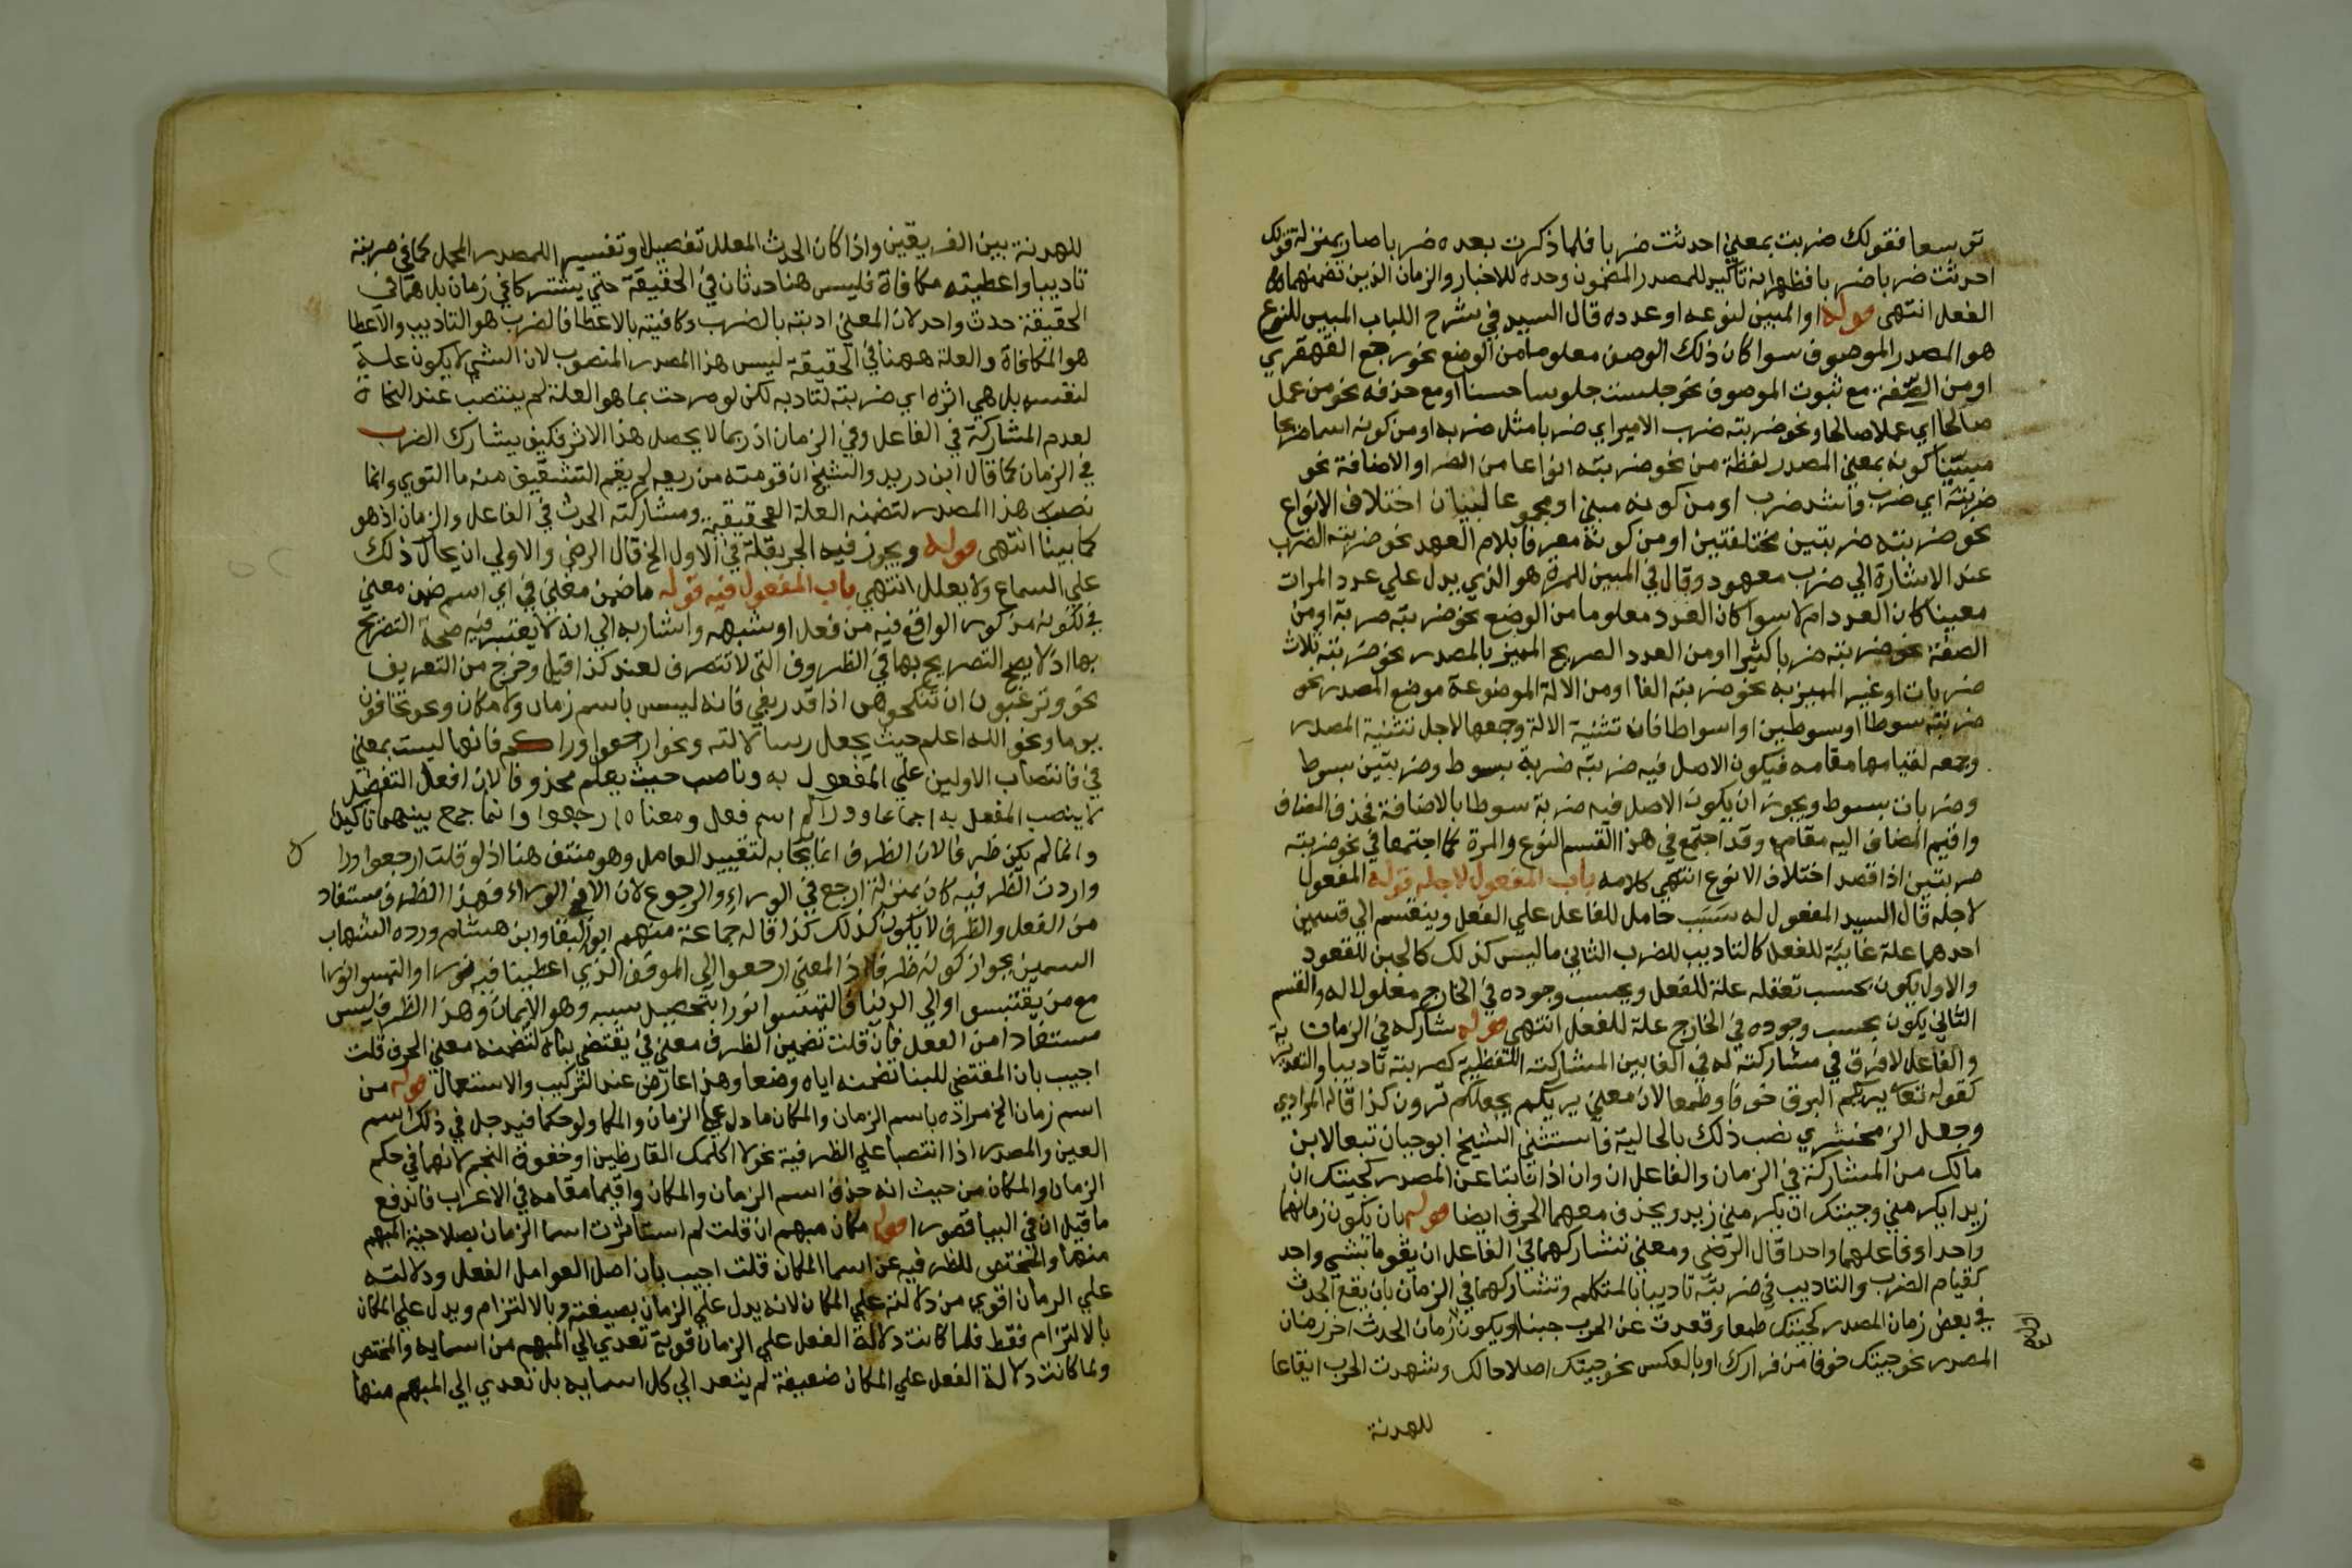 توسعا فقولك ضربت بمعني احدثت ضربا فلما ذكرت بعده ضربا صار بمنزلة قولك
احدثت ضربا ضربا فظهر انه تاكيد للمصدر المضمون وحده للاخبار والزمان الذين تضمنهما
الفعل انتهى قوله او المبين لنوعه او عدده قال السيد في شرح اللباب المبين للنوع
هو المصدر الموصوف سوا كان ذلك الوصف معلوما من الوضع نحو رجع القهقري
او من الصفة مع ثبوت الموصوف نحو جلست جلوسا حسنا او مع حذفه نحو من عمل
صالحا اي عملا صالحا ونحو ضربته ضرب الامير اي ضربا مثل ضربه او من كونه اسما صريحا
مبينا كونه بمعني المصدر لفظة من نحو ضربته انواعا من الضرب او الاضافة نحو
ضربته اي ضرب واشد ضرب او من كونه مبني او مجموعا لبيان اختلاف الانواع
نحو ضربته ضربتين مختلفتين او من كونه معرفا بلام العهد نحو ضربته الضرب
عند الاشارة الي ضرب معهود وقال في المبين للمرة هو الذي يدل علي عدد المرات
معينا كان العدد ام لا سوا كان العدد معلوما من الوضع نحو ضربته ضربة او من
الصفة نحو ضربته ضربا كثيرا او من العدد الصريح المميز بالمصدر نحو ضربته ثلاث
ضربات او غير المميز به نحو ضربته الفا او من الالة الموضوعة موضع المصدر نحو
ضربته سوطا او سوطين او اسواطا فان تثنية الالة وجمعها لاجل تثنية المصدر
وجمعه لقيامها مقامه فيكون الاصل فيه ضربته ضربة بسوط وضربتين بسوط
وضربات بسوط ويجوز ان يكون الاصل فيه ضربة سوطا بالاضافة فحذف المضاف
واقيم المضاف اليه مقامه وقد اجتمع في هذا القسم النوع والمرة كما اجتمعا في نحو ضربته
ضربتين اذا قصد اختلاف الانوع انتهي كلامه باب المفعول لاجله قوله المفعول
لاجله قال السيد المفعول له سبب حامل للفاعل علي الفعل وينقسم الي قسمين
احدهما علة غايية للفعل كالتاديب للضرب الثاني ما ليس كذلك كالجبن للقعود
والاول يكون بحسب تعقله علة للفعل وبحسب وجوده في الخارج معلولا له والقسم
الثاني يكون بحسب وجوده في الخارج علة للفعل انتهي قوله شاركه في الزمان
والفاعل لا فرق في مشاركته له في الفا بين المشاركة اللفظية كضربته تاديبا والتقديرية
كقوله تعا يريكم البرق خوفا وطمعا لان معني يريكم يجعلكم ترون كذا قاله المرادي
وجعل الزمخشري نصب ذلك بالحالية فاستثني الشيخ ابو حيان تبعا لابن
مالك من المشاركة في الزمان والفاعل ان وان اذا نابتا عن المصدر كجيتك ان
زيدا يكرمني وجيتك ان يكرمني زيد ويحذف معهما الحرف ايضا قوله بان يكون زمانهما
واحدا وفاعلهما واحدا قال الرضي ومعني تشاركهما في الفاعل ان يقوما بشي واحد
كقيام الضرب والتاديب في ضربته تاديبا بالمتكلم وتشاركهما في الزمان بان يقع الحدث
في بعض زمان المصدر كجيتك طمعا وقعدت عن الحرب جبنا او يكون زمان الحدث اخر زمان
المصدر نحو جيتك خوفا من فرارك او بالعكس نحو جيتك اصلاحا لك وشهدت الحرب ايقاعا
للهدنة
للهدنة بين الفريقين واذا كان الحدث المعلل تفصيلا وتفسيرا للمصدر المجمل كما في ضربته
تاديبا واعطيته مكافاة فليس هنا حدثان في الحقيقة حتي يشتركا في زمان بل هما في
الحقيقة حدث واحد لان المعني ادبته بالضرب وكافيته بالاعطا فالضرب هو التاديب والاعطا
هو المكافاة والعلة ههنا في الحقيقة ليس هذا المصدر المنصوب لان الشي لا يكون علة
لنفسه بل هي اثره اي ضربته لتادبه لكن لو صرحت بما هو العلة لم ينتصب عند النحاة
لعدم المشاركة في الفاعل وفي الزمان اذ ربما لا يحصل هذا الاثر فكيف يشارك الضرب
في الزمان كما قال ابن دريد والشيخ ان قومته من زيغه لم يقم التثقيف منه ما التوي وانما
نصب هذا المصدر لتضمنه العلة الحقيقية ومشاركته الحدث في الفاعل والزمان اذ هو
كما بينا انتهى قوله ويجوز فيه الجر بقلة في الاول الخ قال الرضي والاولي ان يحال ذلك
علي السماع ولا يعلل انتهي باب المفعول فيه قوله ما ضمن معني في اي اسم ضمن معني
في لكونه مذكورا لواقع فيه من فعل او شبهه واشار به الي انه لا يعتبر فيه صحة التصريح
بها اذ لا يصح التصريح بها في الظروف التي لا تتصرف لعند كذا قيل وخرج من التعريف
نحو وترغبون ان تنكحوهن اذا قدر بفي فانه ليس باسم زمان ولا مكان ونحو تخافون
يوما ونحو الله اعلم حيث يجعل رسالاته ونحو ارجعوا وراكم فانهما ليست بمعني
في فانتصاب الاولين علي المفعول به وناصب حيث يعلم محذوفا لان افعل التفضيل
لا ينصب المفعل به اجماعا ووراكم اسم فعل ومعناه ارجعوا وانما جمع بينهما تاكيدا
وانما لم يكن ظرفا لان الظرف انما يجا به لتقييد العامل وهو منتف هنا اذ لو قلت ارجعوا ورا
واردت الظرفيه كان بمنزلة ارجع في الوراء والرجوع لان الا في الوراء فهذا الظرف مستفاد
من الفعل والظرف لا يكون كذلك كذا قاله جماعة منهم ابو البقا وابن هشام ورده الشهاب
السمين بجواز كونه ظرفا اذ المعني ارجعوا الي الموقف الذي اعطينا فيه نورا والتمسوا نورا
مع من يقتبس او الي الدنيا فالتمسوا نورا بتحصيل سببه وهو الايمان وهذا الظرف ليس
مستفادا من الفعل فان قلت تضمين الظرف معني في يقتضي بناه لتضمنه معني الحرف قلت
اجيب بان المقتضي للبنا تضمنه اياه وضعا وهذا عارض عند التركيب والاستعمال قوله من
اسم زمان الخ مراده باسم الزمان والمكان ما دل علي الزمان والمكا ولو حكما فيدخل في ذلك اسم
العين والمصدر اذا انتصبا علي الظرفية نحو لا اكلمك القارظين او خفوق النجم لانهما في حكم
الزمان والمكان من حيث انه حذف اسم الزمان والمكان واقيما مقامه في الاعراب فاندفع
ما قيل ان في البيا قصورا قوله مكان مبهم ان قلت لم استاثرت اسما الزمان بصلاحية المبهم
منها والمختص للظرفيه عن اسما المكان قلت اجيب بان اصل العوامل الفعل ودلالته
علي الزمان اقوي من دلالته علي المكان لانه يدل علي الزمان بصيغته وبالالتزام ويدل علي المكان
بالالتزام فقط فلما كانت دلالة الفعل علي الزمان قوية تعدي الي المبهم من اسمايه والمختص
ولما كانت دلالة الفعل علي المكان ضعيفة لم يتعد الي كل اسمايه بل تعدي الي المبهم منها